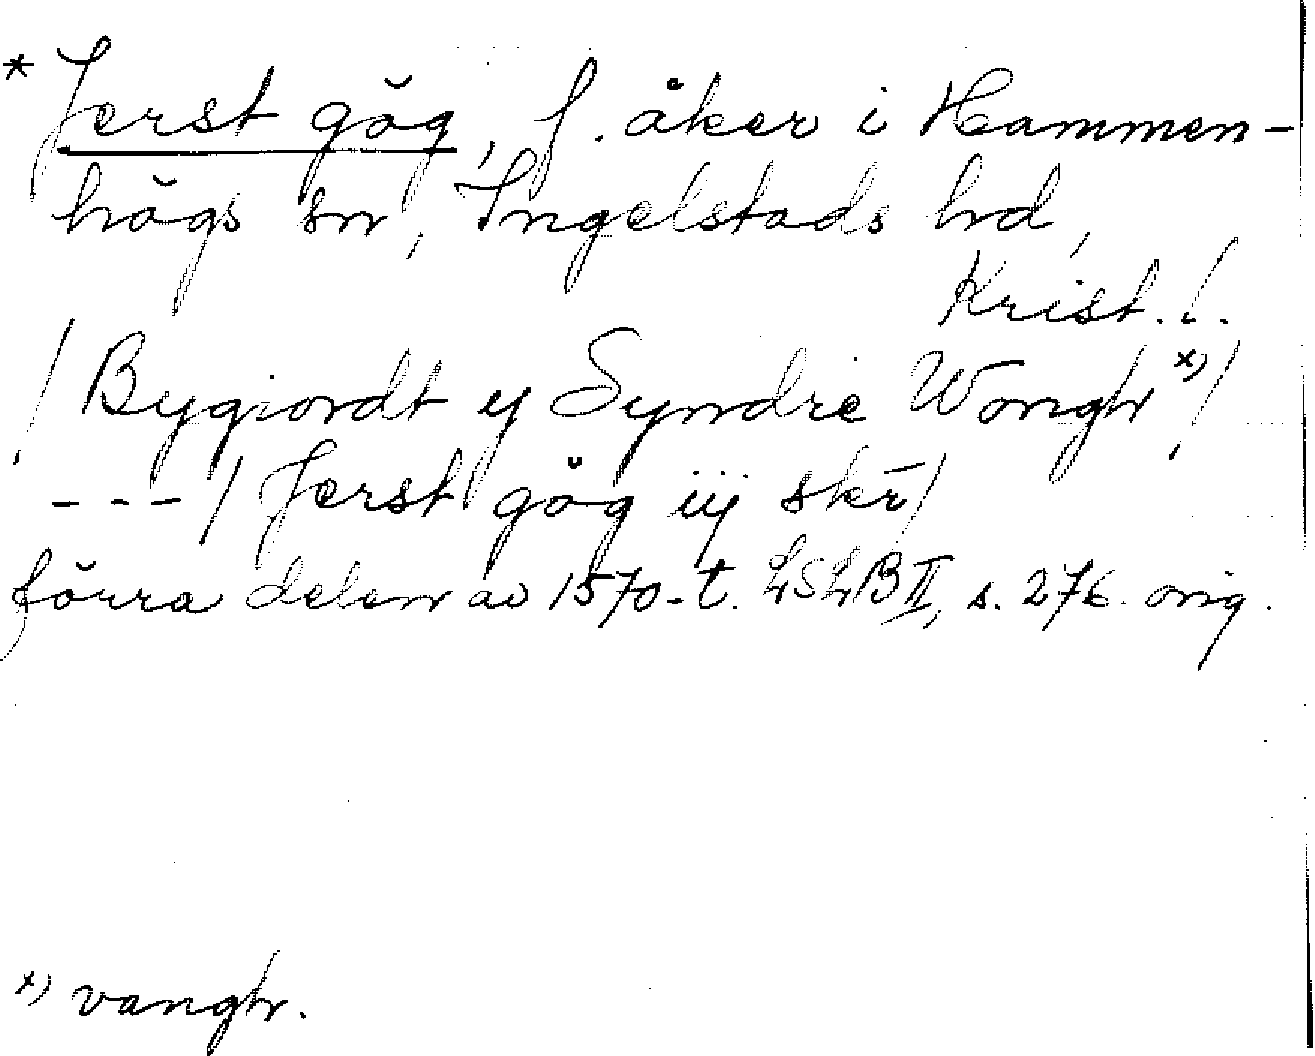 * Jerst gög, f. åker i Hammen-
högs sn, Ingelstads hd,
Krist. l.
/ Bygiordt y Syndre Wongh x) /
--- / Jerst gög iij skr /
förra delen av 1570-t. LSLB II, s. 276. orig.
x) vangh.